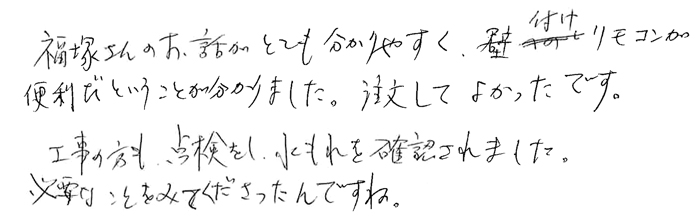 福塚さんのお話がとても分かりやすく、壁付けリモコンが
便利だということが分かりました。注文してよかったです。
工事の方も、点検をし、水もれを確認されました。
必要なことをみてくださったんですね。